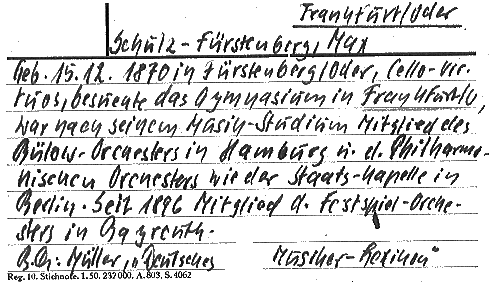 Frankfurt/Oder
Schulz-Fürstenberg, Max
Geb. 15.12. 1870 in Fürstenberg/Oder, Cello-Vir-
tuos, besuchte das Gymnasium in Frankfurt/O,
war nach seinem Musik-Studium Mitglied des
Bülow-Orchesters in Hamburg u. d. Philharmo-
nischen Orchesters wie der Staats-Kapelle in
Berlin. Seit 1896 Mitglied d. Festspiel-Orche-
sters in Bayreuth.
B.Qu: Müller, „Deutsches Musiker-Lexikon"
Reg. 10. Stichnote. 1. 50. 232000. A. 803. S. 4062